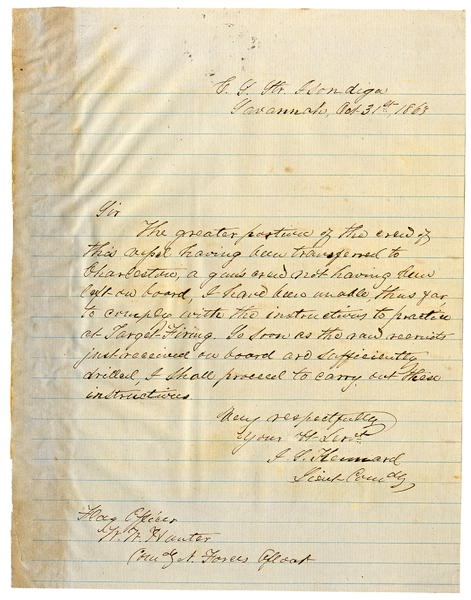 C. S. Str. Isondiga
Savannah, Oct 31st, 1863
Sir
The greater portion of the crew of
this vessel having been transferred to
Charleston, a gun's crew not having been
left on board, I have been unable thus far
to comply with the instructions to practice
at Target Firing. So soon as the raw recruits
just received on board are sufficiently
drilled, I shall proceed to carry out these
instructions
Very respectfully
Your Obt Servt
J. S. Kennard
Lieut Comdg
Flag Officer
W. W. Hunter
Comdg N. Forces Afloat